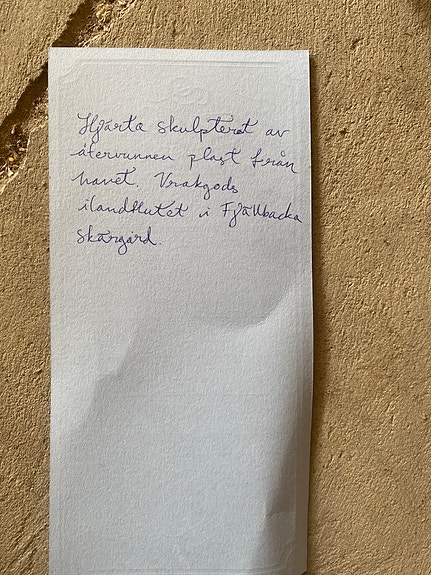 Hjärta skulpterat av
återvunnen plast från
havet. Vrakgods
ilandflutet i Fjällbacka
skärgård.